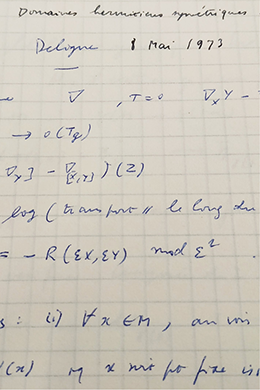 Domaines hermitiens symétriques
Deligne 8 Mai 1973
∇ , T=0 ∇_X Y -
→ O(T_q)
∇_Y] - ∇_[X,Y])(Z)
log (transport // le long du
= - R(εX, εY) mod ε²
s : (i) ∀ x ∈ M, au vois
(x) x soit pt fixe is